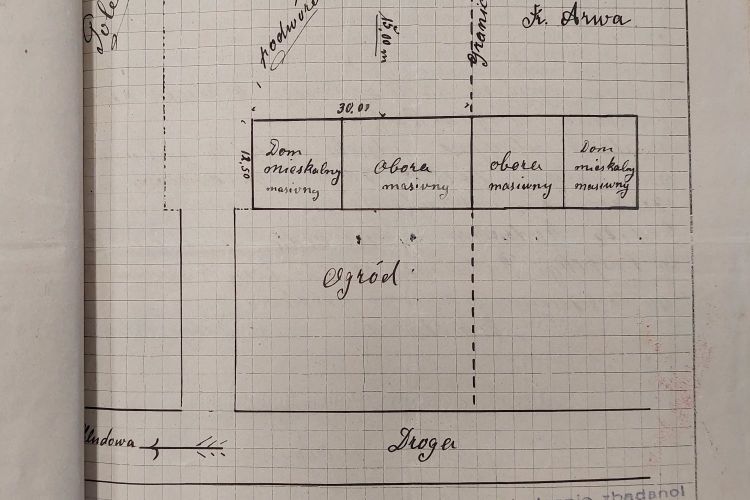 Pole
podwórze
15,00 m
granic
Fr. Arwa
30.00
12,50
Dom
mieskalny
masivny
Obora
masivny
obora
masivny
Dom
mieskalny
masivny
Ogród
Droga
zbadano